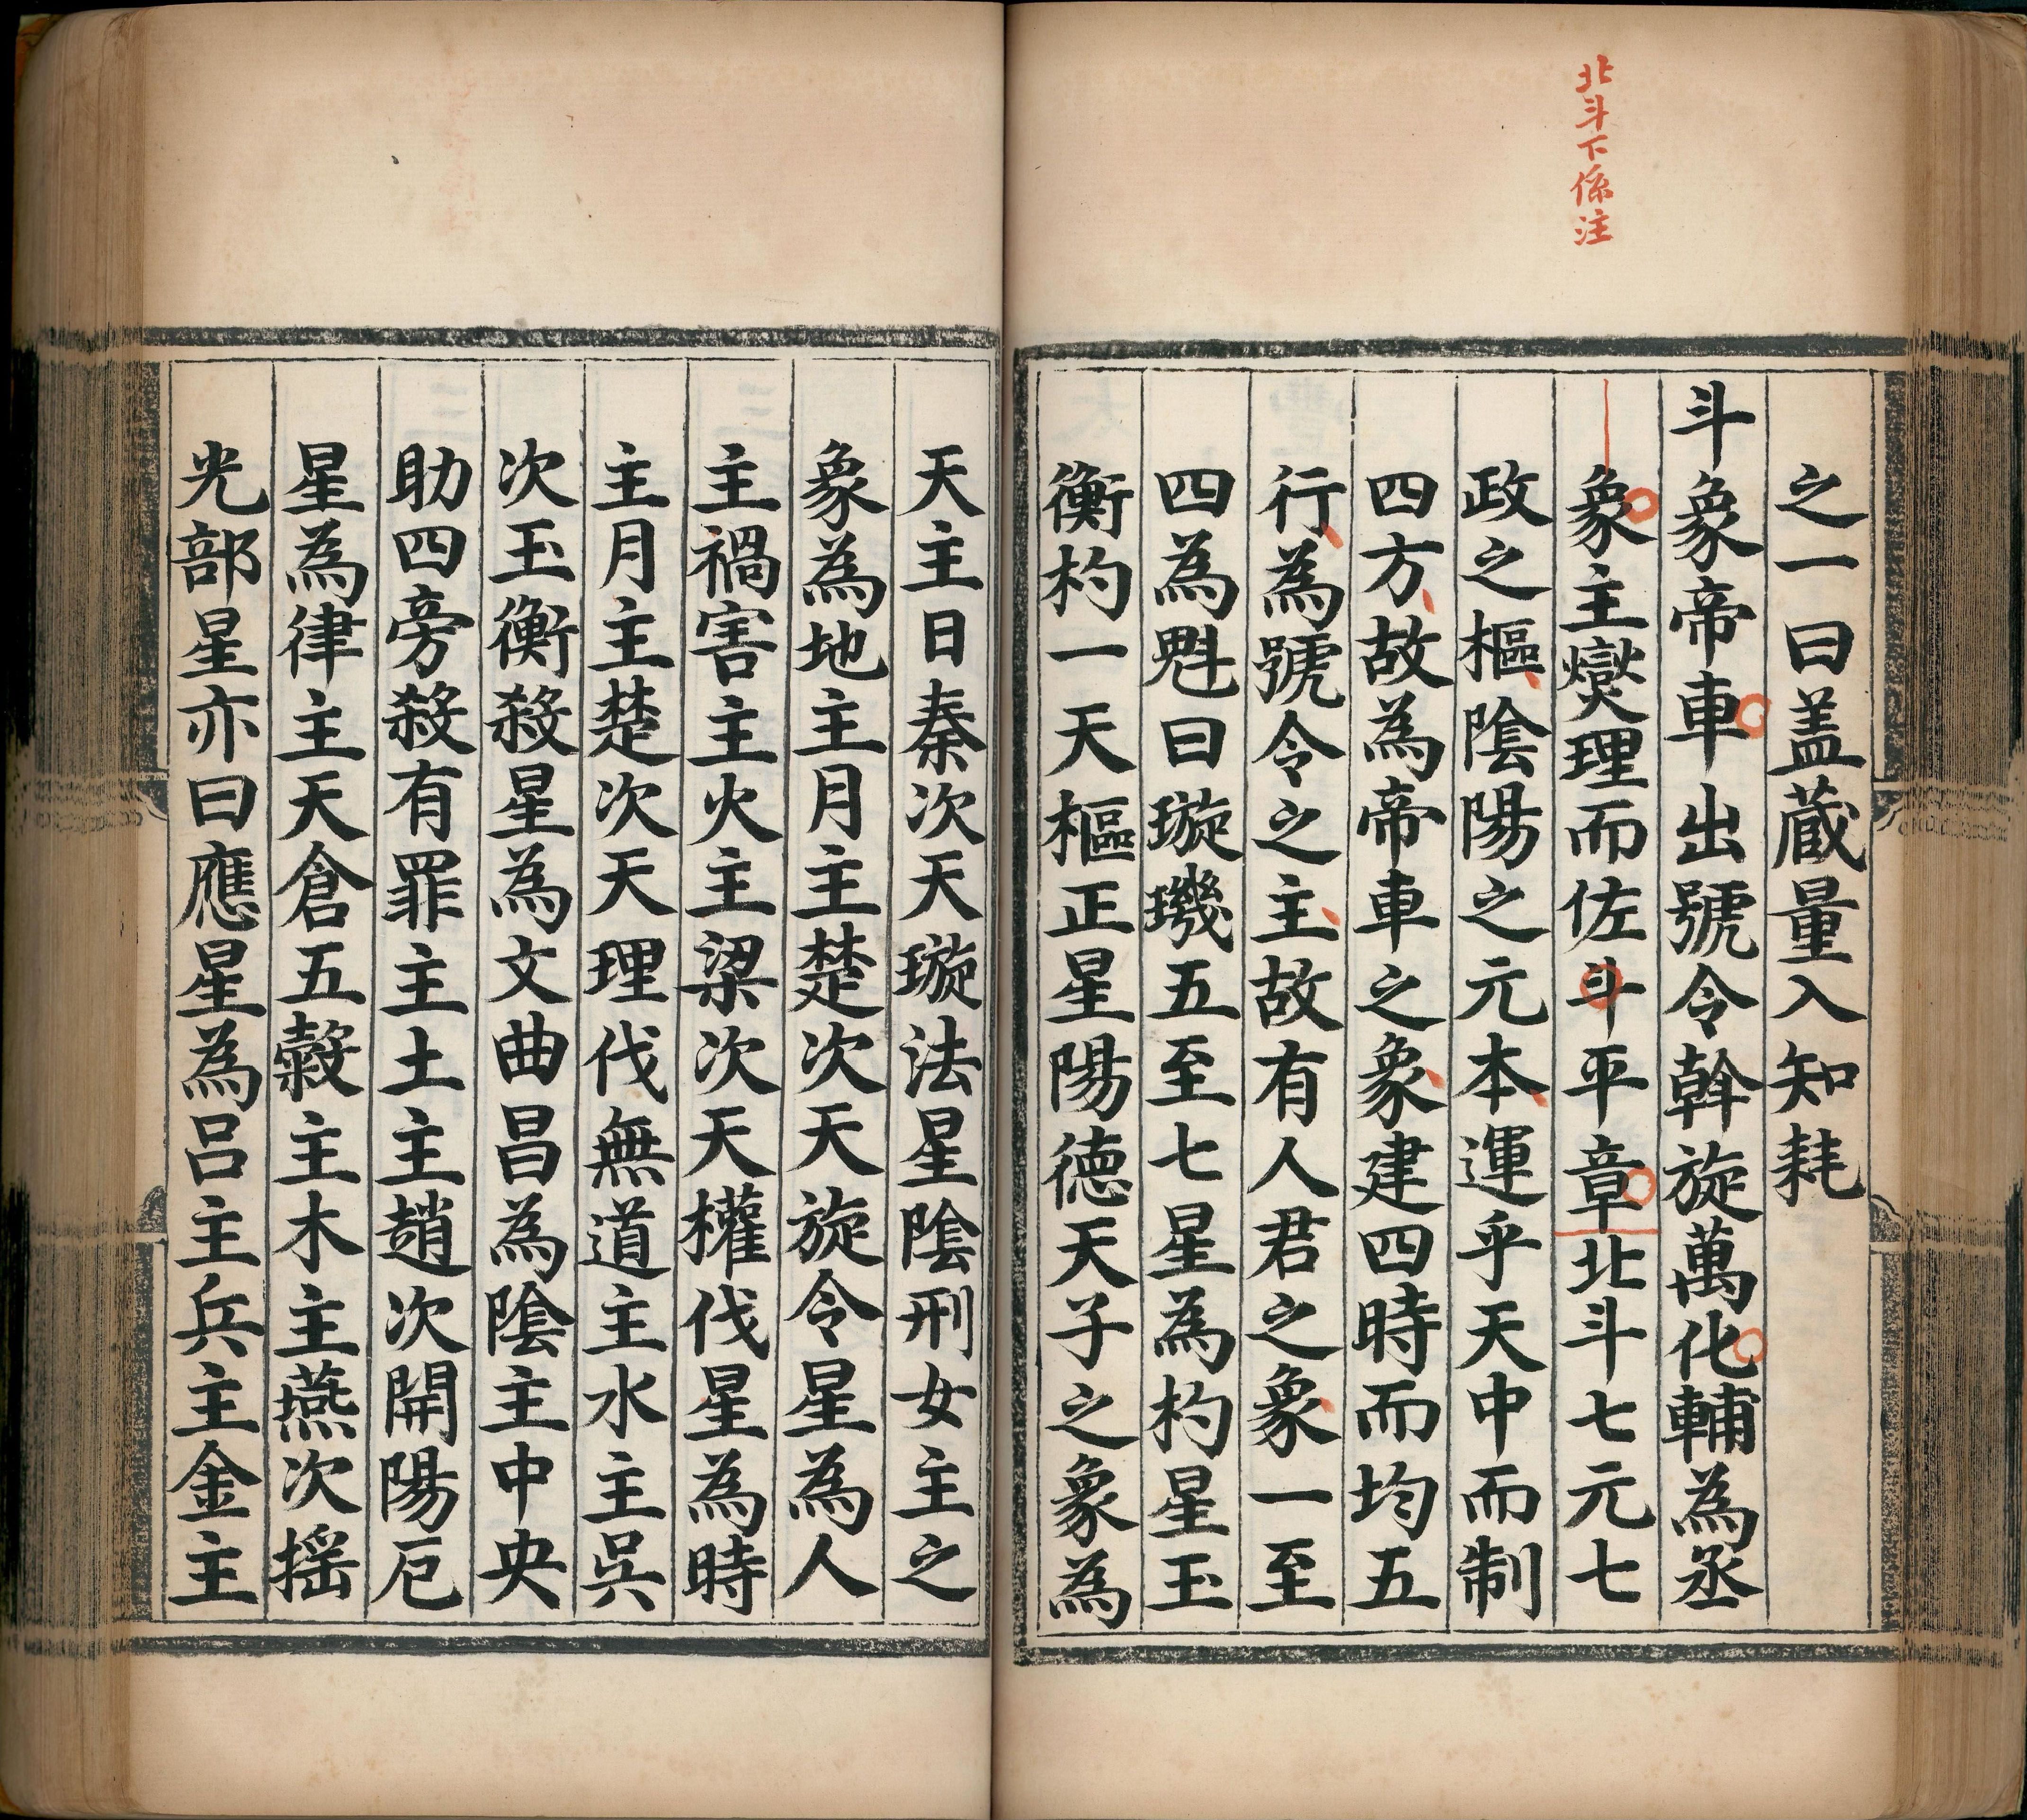 北斗下係注
之一曰盖蔵量入知耗
斗象帝車出號令斡旋萬化輔為丞
象主燮理而佐斗平章北斗七元七
政之樞陰陽之元本運乎天中而制
四方故為帝車之象建四時而均五
行為號令之主故有人君之象一至
四為魁曰璇璣五至七星為杓星玉
衡杓一天樞正星陽德天子之象為
天主日秦次天璇法星陰刑女主之
象為地主月主楚次天旋令星為人
主禍害主火主梁次天權伐星為時
主月主楚次天理伐無道主水主吳
次玉衡殺星為文曲昌為陰主中央
助四旁殺有罪主土主趙次開陽厄
星為律主天倉五穀主木主燕次摇
光部星亦曰應星為呂主兵主金主